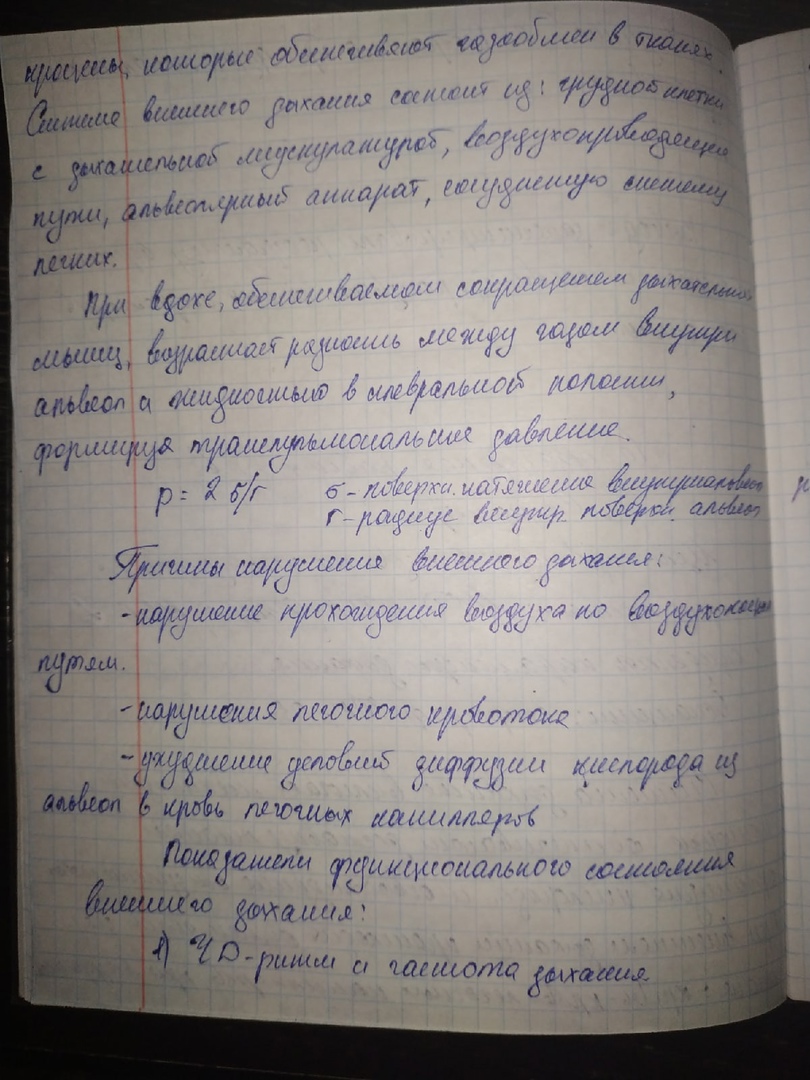 процессы, которые обеспечивают газообмен в тканях.
Система внешнего дыхания состоит из: грудной клетки
с дыхательной мускулатурой, воздухопроводящие
пути, альвеолярный аппарат, сосудистую систему
легких.
При вдохе, обеспечиваемом сокращением дыхательных
мышц, возрастает разность между газом внутри
альвеол и жидкостью в плевральной полости,
формируя транспульмональное давление.
p = 2 б/г б - поверхн. натяжение внутриальвеол
г - радиус внутр. поверхн. альвеол
Причины нарушения внешнего дыхания:
- нарушение прохождения воздуха по воздухонос
путям.
- нарушения легочного кровотока
- ухудшение условий диффузии кислорода из
альвеол в кровь легочных капилляров
Показатели функционального состояния
внешнего дыхания:
1) ЧД - ритм и частота дыхания